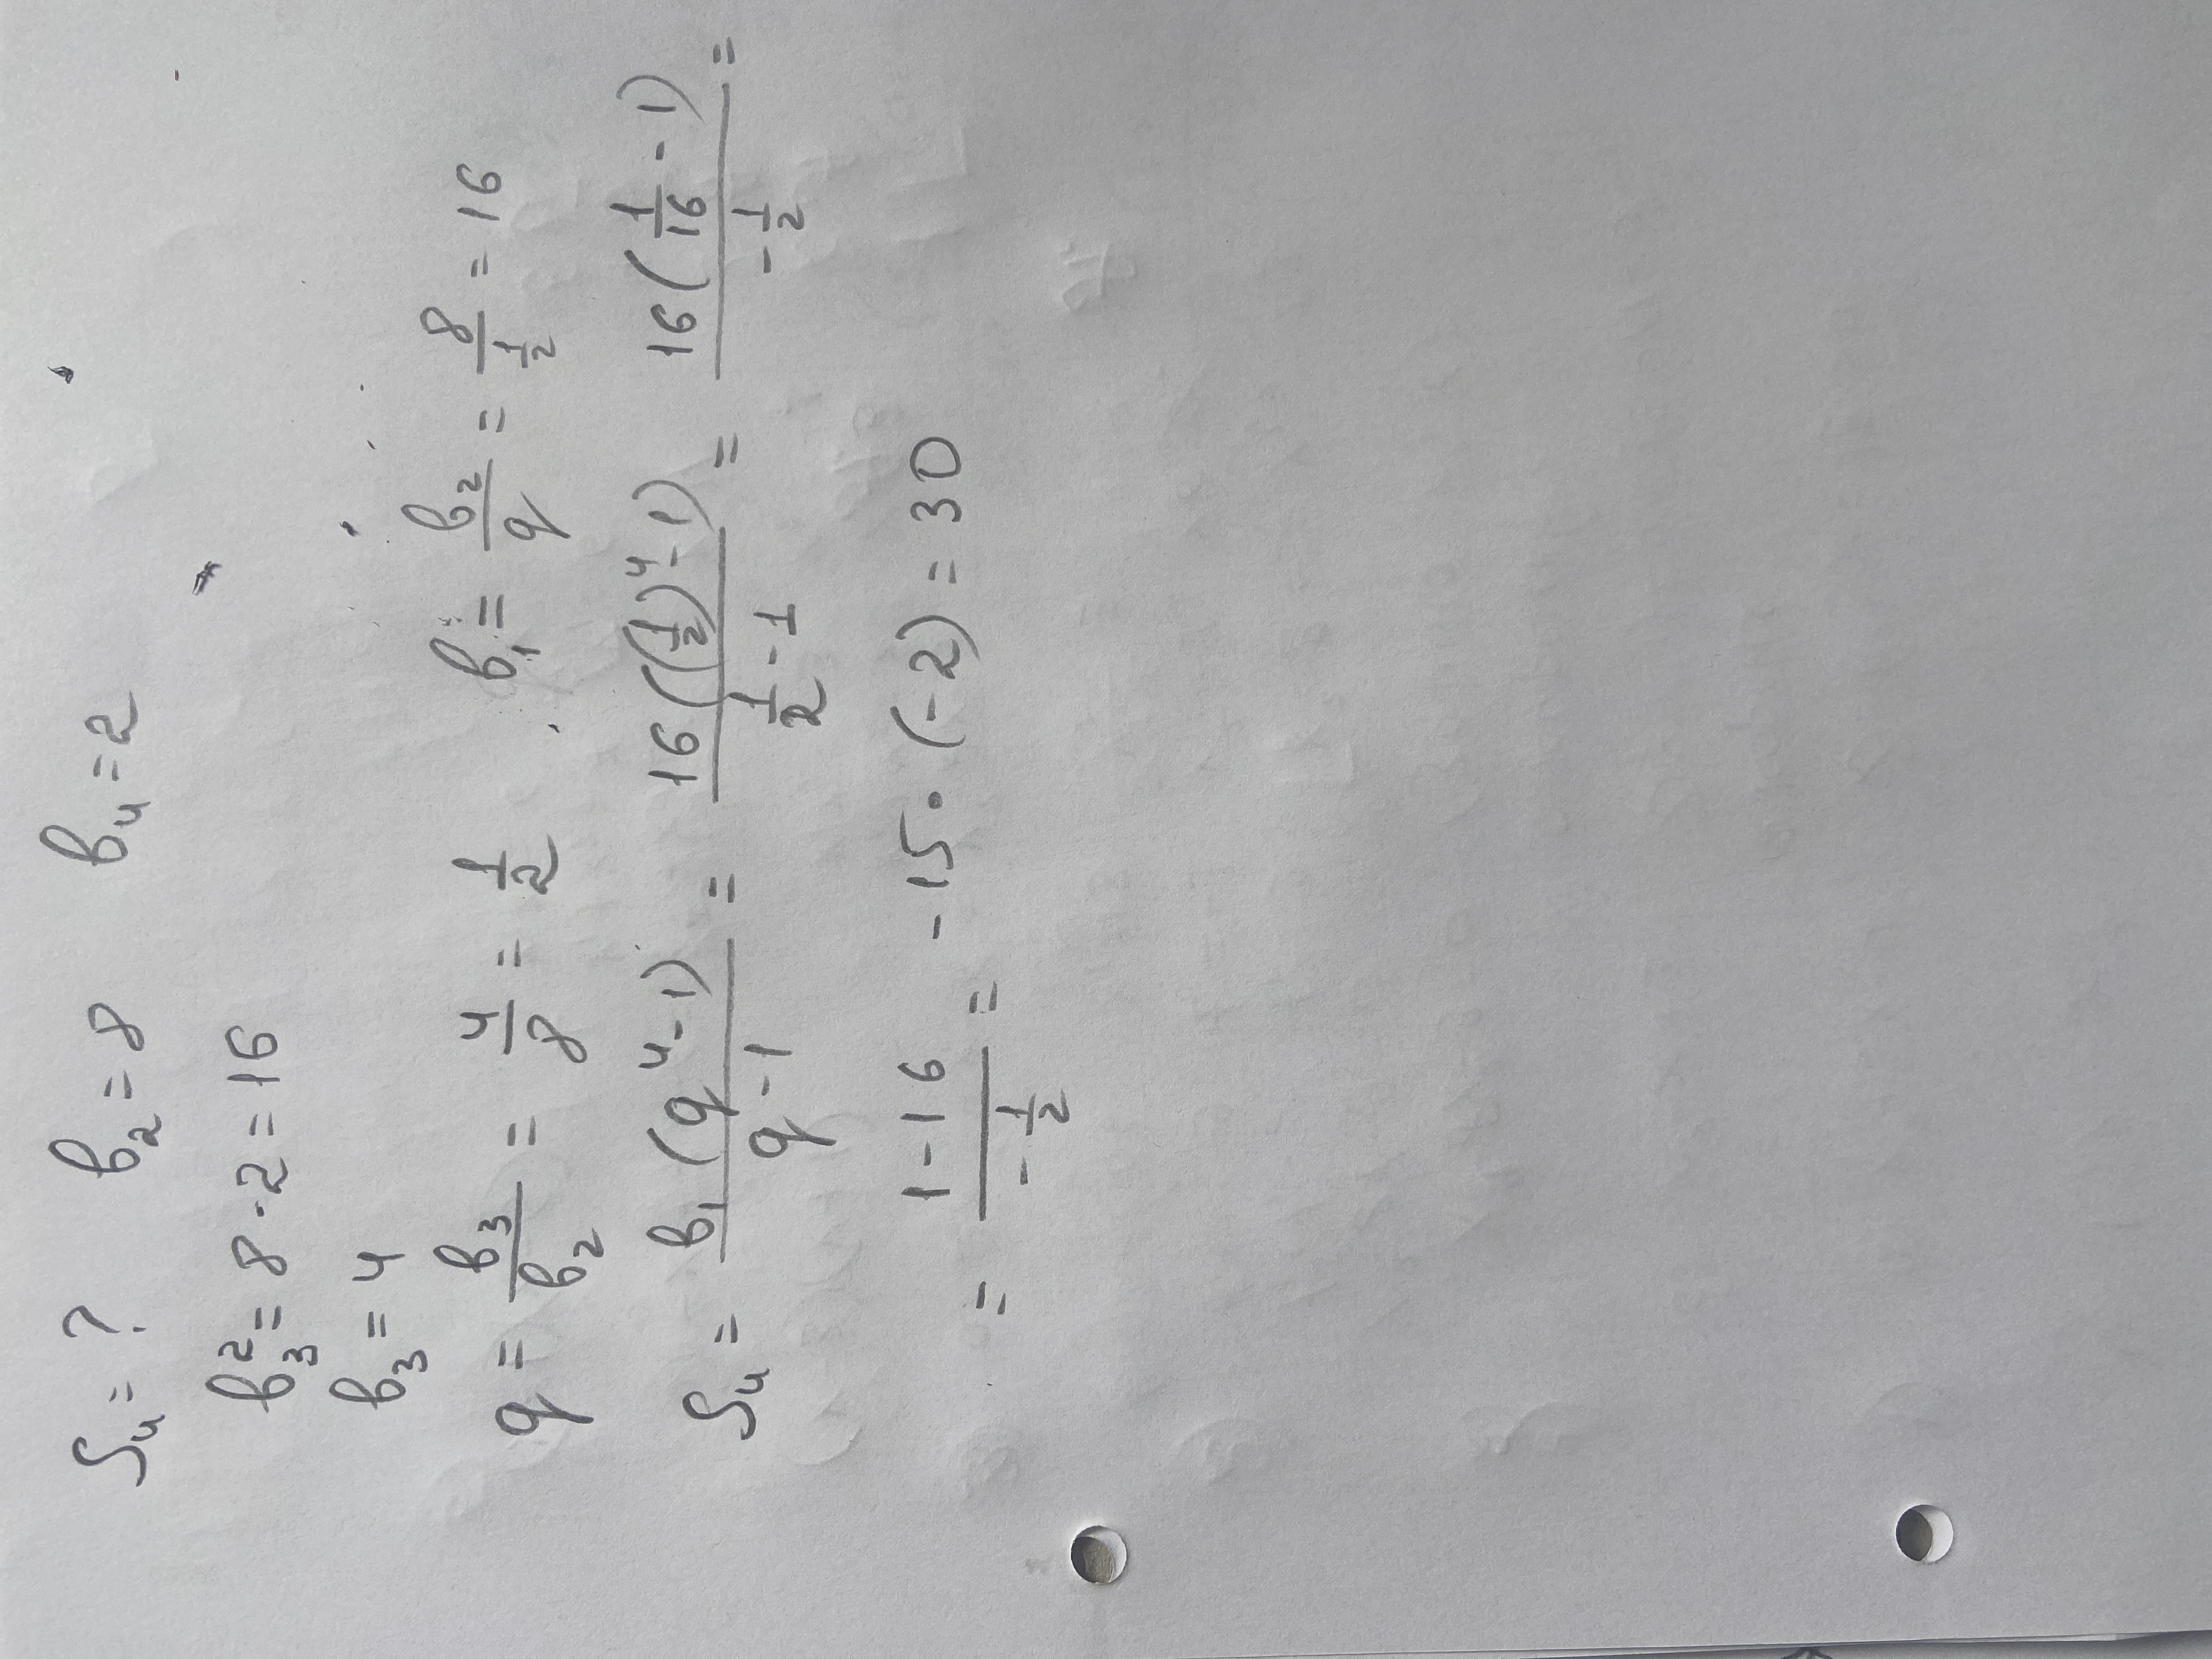 S₄ = ? b₂ = 8 b₄ = 2
b₃² = 8 · 2 = 16
b₃ = 4
q = b₃/b₂ = 4/8 = 1/2 b₁ = b₂/q = 8/(1/2) = 16
S₄ = b₁(q⁴-1)/(q-1) = 16((1/2)⁴-1)/(1/2-1) = 16(1/16-1)/(-1/2) =
= (1-16)/(-1/2) = -15 · (-2) = 30